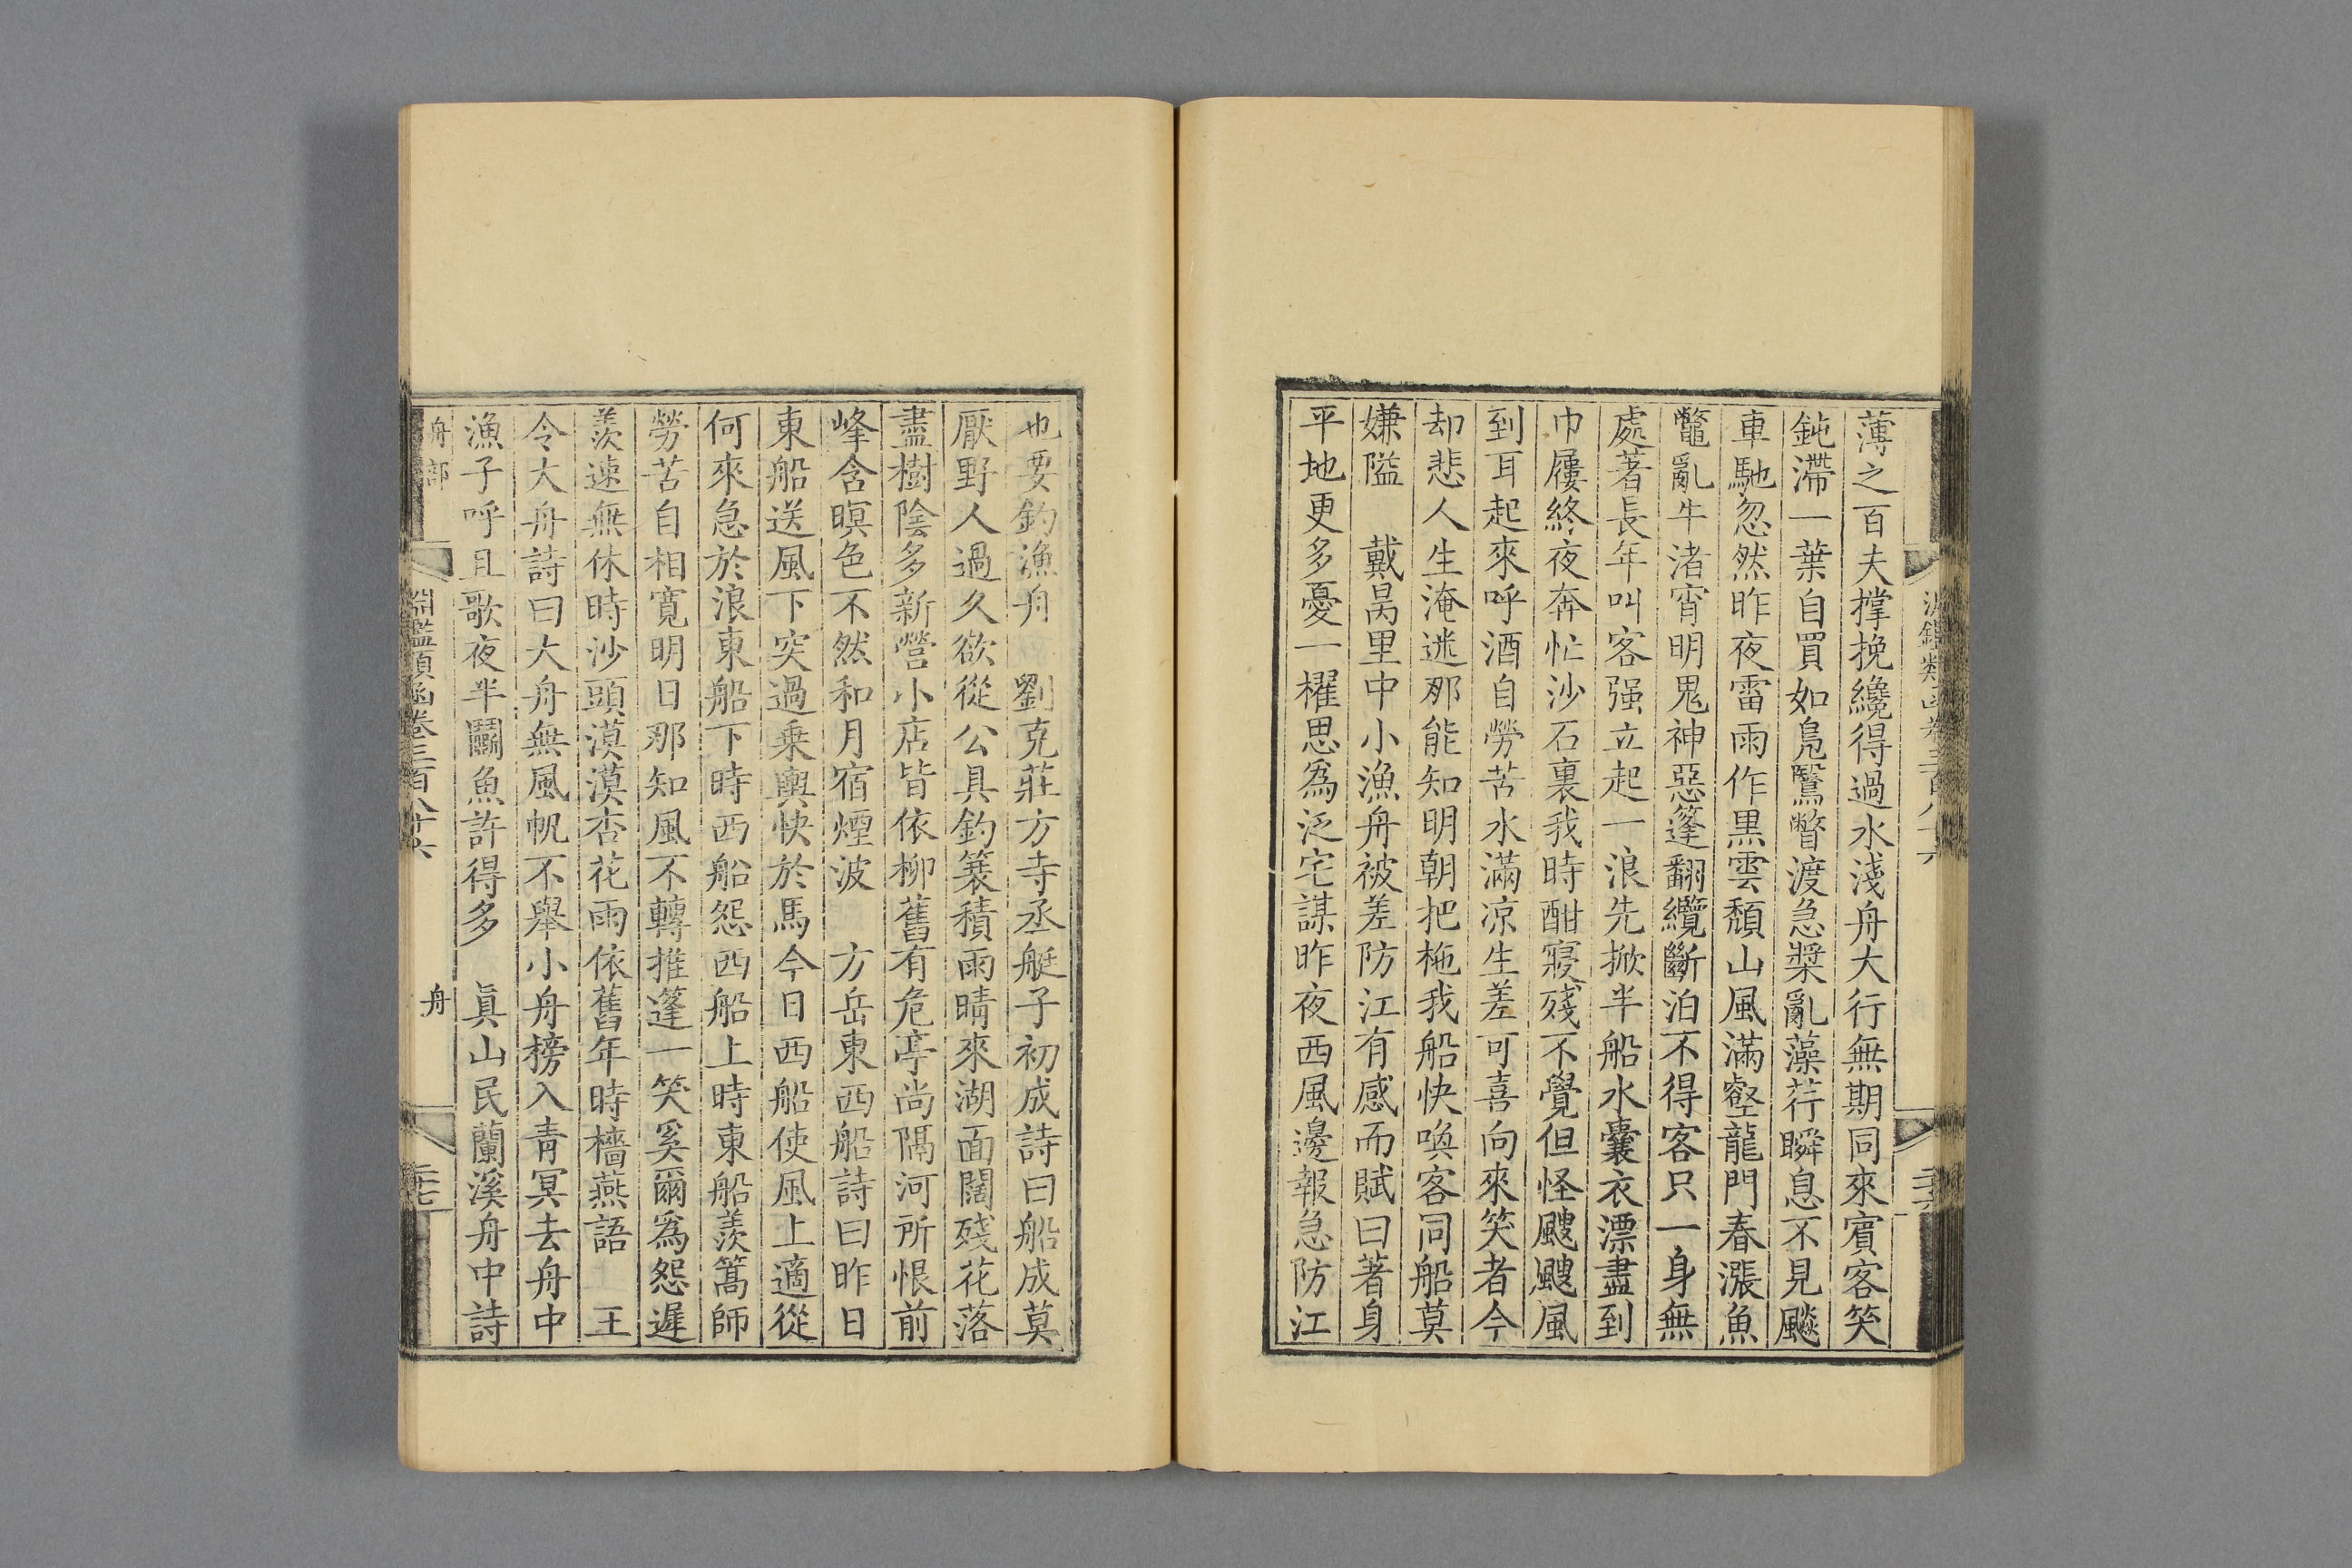 薄之百夫撐挽纔得過水淺舟大行無期同來賓客笑
鈍滯一葉自買如鳧鷖瞥渡急槳亂藻荇瞬息不見飈
車馳忽然昨夜雷雨作黒雲頹山風滿壑龍門春漲魚
鼈亂牛渚宵明鬼神惡篷翻纜斷泊不得客只一身無
處著長年叫客强立起一浪先掀半船水囊衣漂盡到
巾屨終夜奔忙沙石裏我時酣寢殘不覺但怪颼颼風
到耳起來呼酒自勞苦水滿凉生差可喜向來笑者今
却悲人生淹速那能知明朝把柂我船快喚客同船莫
嫌隘 戴昺里中小漁舟被差防江有感而賦曰著身
平地更多憂一櫂思爲泛宅謀昨夜西風邊報急防江
也要釣漁舟 劉克莊方寺丞艇子初成詩曰船成莫
厭野人過久欲從公具釣簑積雨晴來湖面闊殘花落
盡樹陰多新營小店皆依柳舊有危亭尚隔河所恨前
峰含暝色不然和月宿煙波 方岳東西船詩曰昨日
東船送風下突過乗輿快於馬今日西船使風上適從
何來急於浪東船下時西船怨西船上時東船羨篙師
勞苦自相寬明日那知風不轉推篷一笑奚爾爲怨遲
羨速無休時沙頭漠漠杏花雨依舊年時檣燕語 王
令大舟詩曰大舟無風帆不舉小舟榜入青冥去舟中
漁子呼且歌夜半鬭魚許得多 眞山民蘭溪舟中詩
舟部 淵鑑類函卷三百八十六 舟 三十七